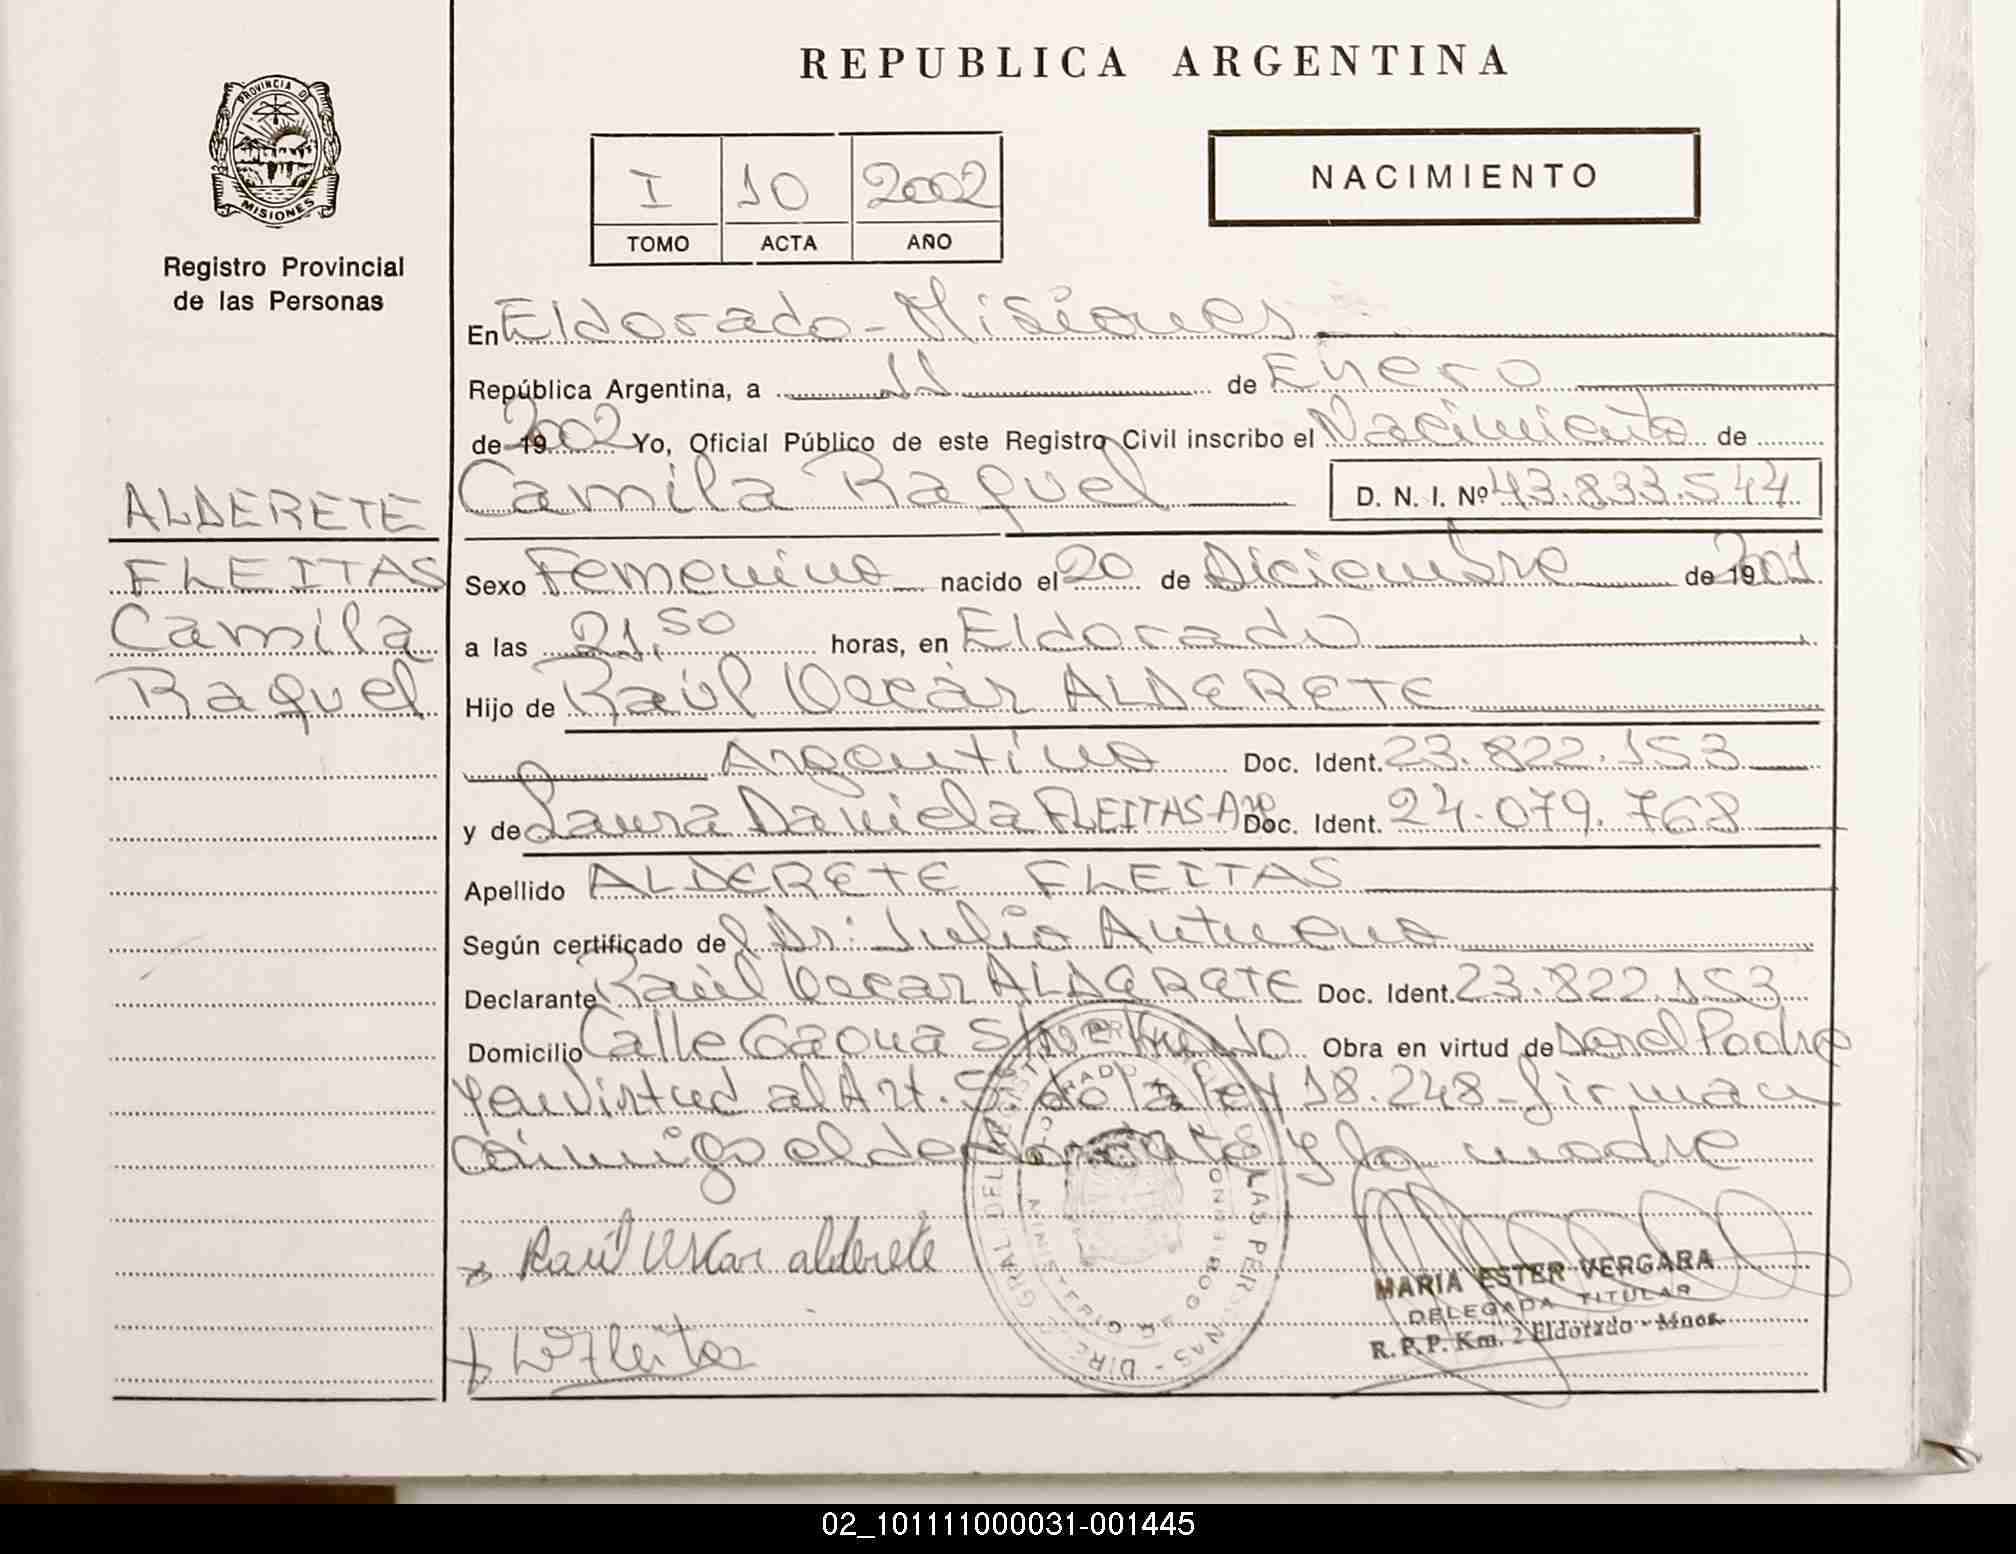 REPUBLICA ARGENTINA
PROVINCIA DE
MISIONES
Registro Provincial
de las Personas
I 10 2002
TOMO ACTA AÑO
NACIMIENTO
En Eldorado - Misiones
República Argentina, a 11 de Enero
de 19 2002 Yo, Oficial Público de este Registro Civil inscribo el Nacimiento de
Camila Raquel D. N. I. Nº 43.833.544
ALDERETE
FLEITAS
Camila
Raquel
Sexo Femenino nacido el 20 de Diciembre de 19 2001
a las 21,50 horas, en Eldorado
Hijo de Raúl Oscar ALDERETE
Argentino Doc. Ident. 23.822.153
y de Laura Daniela FLEITAS-Arg Doc. Ident. 24.079.768
Apellido ALDERETE FLEITAS
Según certificado de Dr: Julio
Declarante Raúl Oscar ALDERETE Doc. Ident. 23.822.153
Domicilio Calle Gaona S/n Obra en virtud de ser el Padre
y en virtud al Art. 5 de la ley 18.248 - firman
conmigo el declarante y la madre
Raúl Oscar alderete
Fleitas
MARIA ESTER VERGARA
DELEGADA TITULAR
R. P. P. Km. 2 Eldorado - Mnes.
02_101111000031-001445